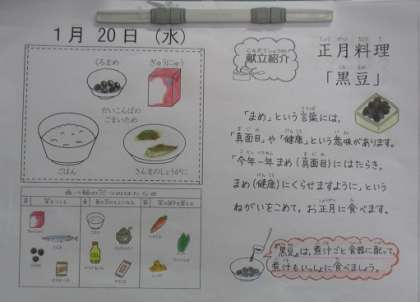 1月 20日 (水)
くろまめ
ぎゅうにゅう
だいこんばの
ごまいため
ごはん
さんまのしょうがに
献立紹介
正月料理
「黒豆」
「まめ」という言葉には、
「真面目」や「健康」という意味があります。
「今年一年まめ(真面目)にはたらき、
まめ(健康)にくらせますように」という
ねがいをこめて、お正月に食べます。
『黒豆』は、煮汁ごと食器に配って、
煮汁もいっしょに食べましょう。